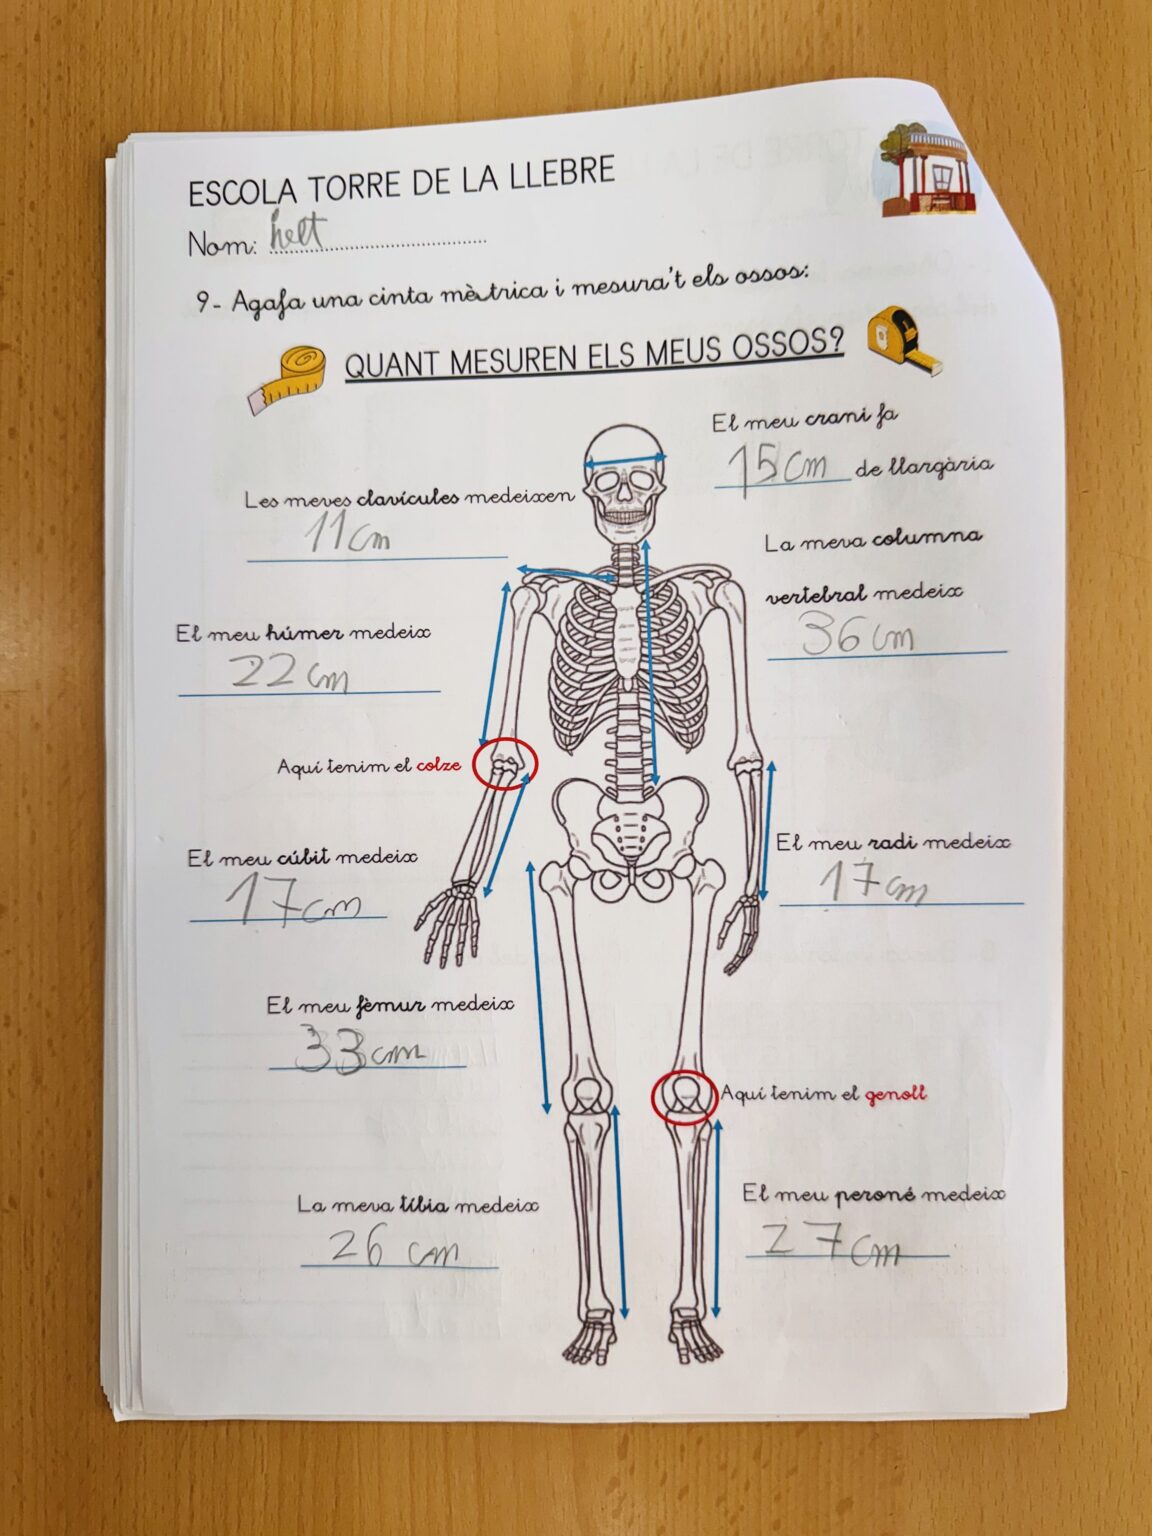 ESCOLA TORRE DE LA LLEBRE
Nom: helt
9- Agafa una cinta mètrica i mesura't els ossos:
QUANT MESUREN ELS MEUS OSSOS?
El meu crani fa
15cm de llargària
Les meves clavícules medeixen
11cm
La meva columna
vertebral medeix
36cm
El meu húmer medeix
22cm
Aquí tenim el colze
El meu cúbit medeix
17cm
El meu radi medeix
17cm
El meu fèmur medeix
33cm
Aquí tenim el genoll
La meva tíbia medeix
26 cm
El meu peroné medeix
27cm